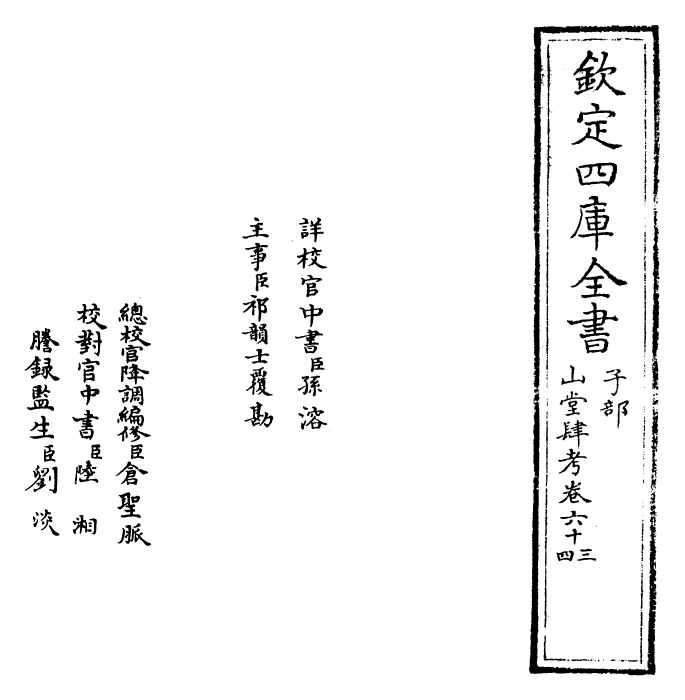 欽定四庫全書
子部
山堂肆考卷六十三
四
詳校官中書臣孫溶
主事臣祁韻士覆勘
總校官降調編修臣倉聖脈
校對官中書臣陸湘
謄録監生臣劉淡